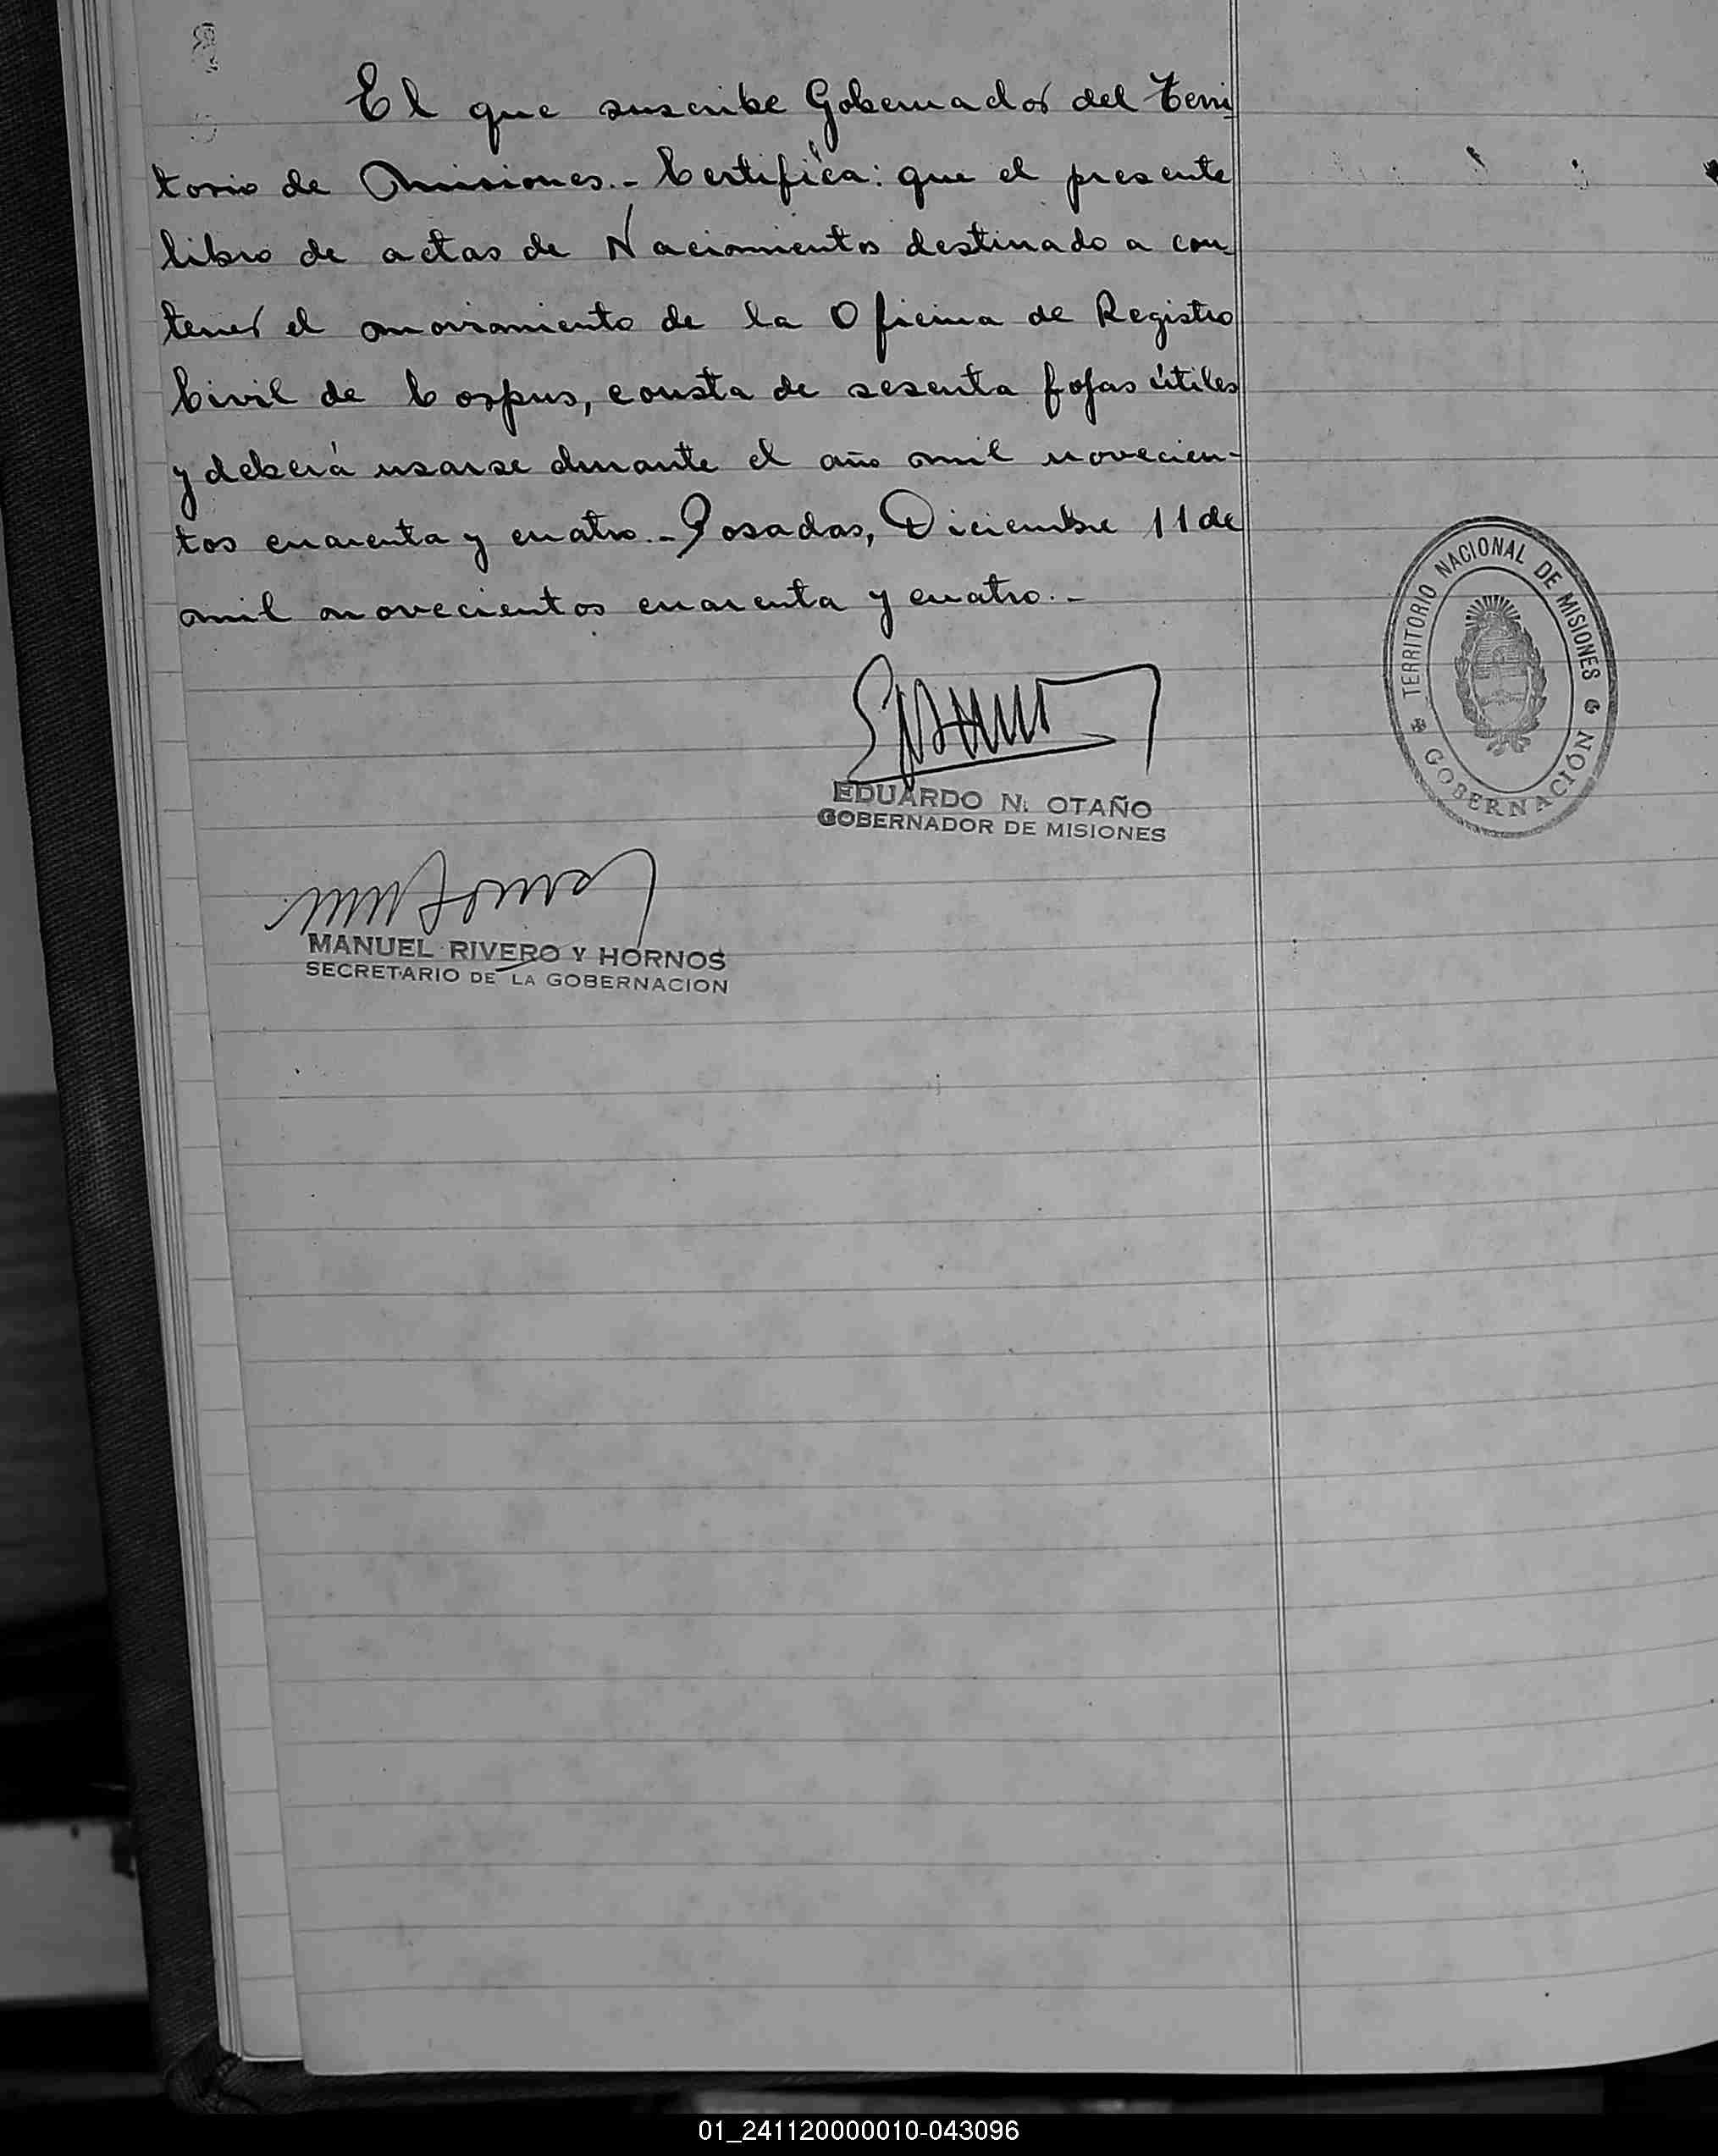 El que suscribe Gobernador del Terri
torio de Misiones.- Certifica: que el presente
libro de actas de Nacimientos destinado a con-
tener el movimiento de la Oficina de Registro
Civil de Corpus, consta de sesenta fojas útiles
y deberá usarse durante el año mil novecien-
tos cuarenta y cuatro.- Posadas, Diciembre 11 de
mil novecientos cuarenta y cuatro.-
TERRITORIO NACIONAL DE MISIONES
GOBERNACIÓN
EDUARDO N. OTAÑO
GOBERNADOR DE MISIONES
MANUEL RIVERO Y HORNOS
SECRETARIO DE LA GOBERNACION
01_241120000010-043096